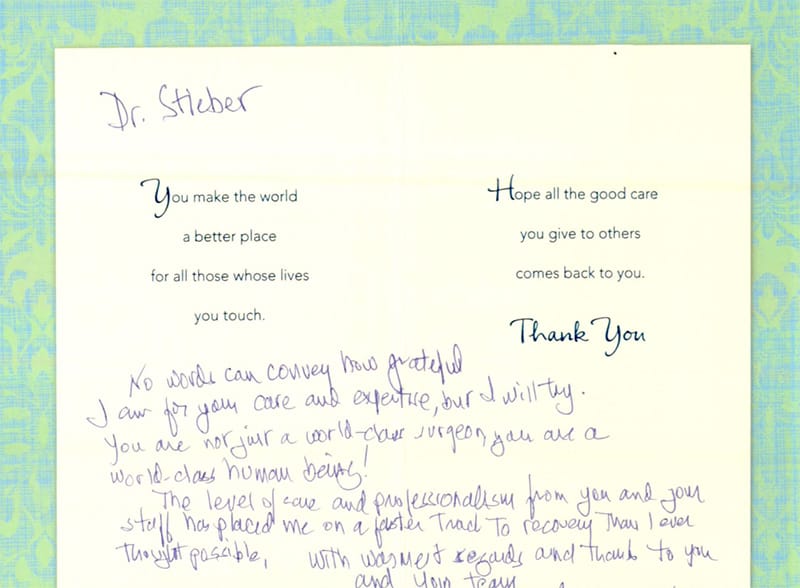 Dr. Stieber
You make the world
a better place
for all those whose lives
you touch.
Hope all the good care
you give to others
comes back to you.
Thank You
No words can convey how grateful
I am for your care and expertise, but I will try.
You are not just a world-class surgeon, you are a
world-class human being!
The level of care and professionalism from you and your
staff has placed me on a faster Track To recovery Than I ever
thought possible,
with warmest regards and thanks to you
and your team